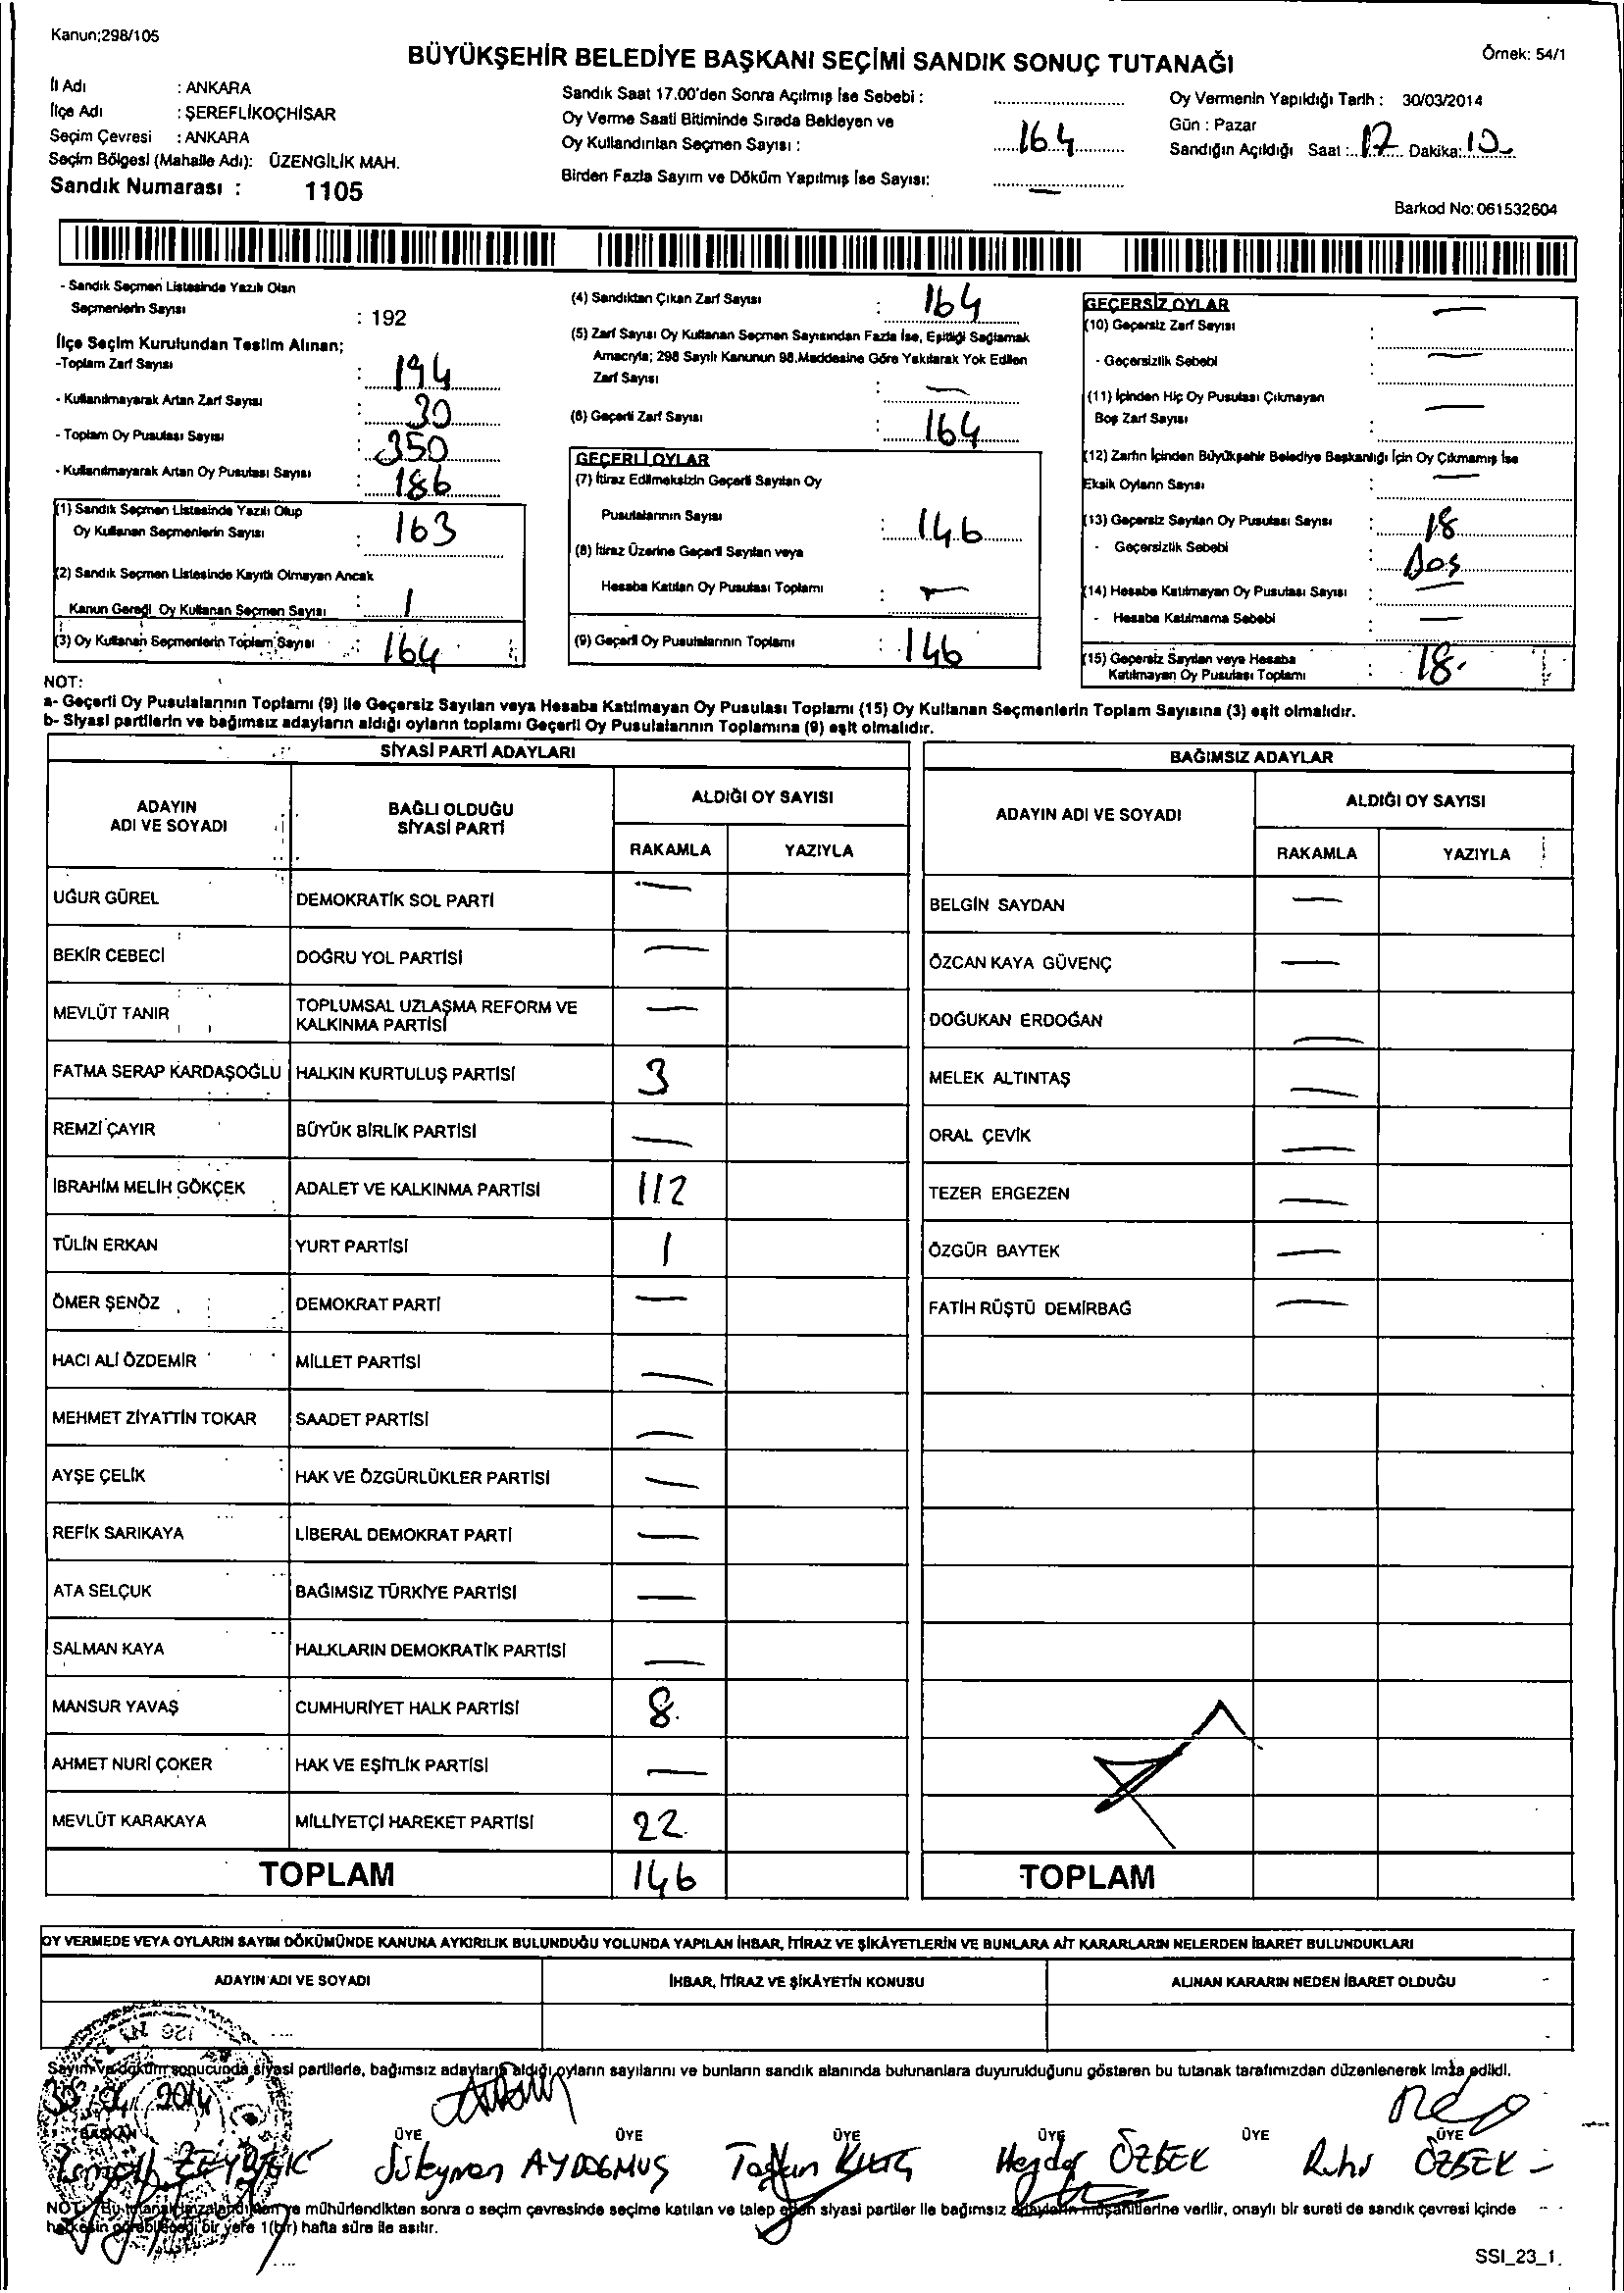 Kanun;298/105
BÜYÜKŞEHİR BELEDİYE BAŞKANI SEÇİMİ SANDIK SONUÇ TUTANAĞI
Örnek: 54/1
İl Adı : ANKARA
İlçe Adı : ŞEREFLİKOÇHİSAR
Seçim Çevresi : ANKARA
Seçim Bölgesi (Mahalle Adı): ÜZENGİLİK MAH.
Sandık Numarası : 1105
Sandık Saat 17.00'den Sonra Açılmış İse Sebebi :
Oy Verme Saati Bitiminde Sırada Bekleyen ve
Oy Kullandırılan Seçmen Sayısı : 164
Birden Fazla Sayım ve Döküm Yapılmış İse Sayısı: —
Oy Vermenin Yapıldığı Tarih : 30/03/2014
Gün : Pazar
Sandığın Açıldığı Saat : 17 Dakika:
Barkod No: 061532604
- Sandık Seçmen Listesinde Yazılı Olan
Seçmenlerin Sayısı : 192
İlçe Seçim Kurulundan Teslim Alınan;
-Toplam Zarf Sayısı : 194
- Kullanılmayarak Artan Zarf Sayısı : 30
- Toplam Oy Pusulası Sayısı : 350
- Kullanılmayarak Artan Oy Pusulası Sayısı : 186
(1) Sandık Seçmen Listesinde Yazılı Olup
Oy Kullanan Seçmenlerin Sayısı : 163
(2) Sandık Seçmen Listesinde Kayıtlı Olmayan Ancak
Kanun Gereği Oy Kullanan Seçmen Sayısı : 1
(3) Oy Kullanan Seçmenlerin Toplam Sayısı : 164
(4) Sandıktan Çıkan Zarf Sayısı : 164
(5) Zarf Sayısı Oy Kullanan Seçmen Sayısından Fazla İse, Eşitliği Sağlamak
Amacıyla; 298 Sayılı Kanunun 98.Maddesine Göre Yakılarak Yok Edilen
Zarf Sayısı : —
(6) Geçerli Zarf Sayısı : 164
GEÇERLİ OYLAR
(7) İtiraz Edilmeksizin Geçerli Sayılan Oy
Pusulalarının Sayısı : 146
(8) İtiraz Üzerine Geçerli Sayılan veya
Hesaba Katılan Oy Pusulası Toplamı : —
(9) Geçerli Oy Pusulalarının Toplamı : 146
GEÇERSİZ OYLAR
(10) Geçersiz Zarf Sayısı : —
- Geçersizlik Sebebi : —
(11) İçinden Hiç Oy Pusulası Çıkmayan
Boş Zarf Sayısı : —
(12) Zarfın İçinden Büyükşehir Belediye Başkanlığı İçin Oy Çıkmamış İse
Eksik Oyların Sayısı : —
(13) Geçersiz Sayılan Oy Pusulası Sayısı : 18
- Geçersizlik Sebebi : Boş
(14) Hesaba Katılmayan Oy Pusulası Sayısı : —
- Hesaba Katılmama Sebebi : —
(15) Geçersiz Sayılan veya Hesaba
Katılmayan Oy Pusulası Toplamı : 18.
NOT:
a- Geçerli Oy Pusulalarının Toplamı (9) ile Geçersiz Sayılan veya Hesaba Katılmayan Oy Pusulası Toplamı (15) Oy Kullanan Seçmenlerin Toplam Sayısına (3) eşit olmalıdır.
b- Siyasi partilerin ve bağımsız adayların aldığı oyların toplamı Geçerli Oy Pusulalarının Toplamına (9) eşit olmalıdır.
SİYASİ PARTİ ADAYLARI
ADAYIN ADI VE SOYADI
BAĞLI OLDUĞU SİYASİ PARTİ
ALDIĞI OY SAYISI
RAKAMLA YAZIYLA
UĞUR GÜREL DEMOKRATİK SOL PARTİ —
BEKİR CEBECİ DOĞRU YOL PARTİSİ —
MEVLÜT TANIR TOPLUMSAL UZLAŞMA REFORM VE KALKINMA PARTİSİ —
FATMA SERAP KARDAŞOĞLU HALKIN KURTULUŞ PARTİSİ 3
REMZİ ÇAYIR BÜYÜK BİRLİK PARTİSİ —
İBRAHİM MELİH GÖKÇEK ADALET VE KALKINMA PARTİSİ 112
TÜLİN ERKAN YURT PARTİSİ 1
ÖMER ŞENÖZ DEMOKRAT PARTİ —
HACI ALİ ÖZDEMİR MİLLET PARTİSİ —
MEHMET ZİYATTİN TOKAR SAADET PARTİSİ —
AYŞE ÇELİK HAK VE ÖZGÜRLÜKLER PARTİSİ —
REFİK SARIKAYA LİBERAL DEMOKRAT PARTİ —
ATA SELÇUK BAĞIMSIZ TÜRKİYE PARTİSİ —
SALMAN KAYA HALKLARIN DEMOKRATİK PARTİSİ —
MANSUR YAVAŞ CUMHURİYET HALK PARTİSİ 8
AHMET NURİ ÇOKER HAK VE EŞİTLİK PARTİSİ —
MEVLÜT KARAKAYA MİLLİYETÇİ HAREKET PARTİSİ 22
TOPLAM 146
BAĞIMSIZ ADAYLAR
ADAYIN ADI VE SOYADI
ALDIĞI OY SAYISI
RAKAMLA YAZIYLA
BELGİN SAYDAN —
ÖZCAN KAYA GÜVENÇ —
DOĞUKAN ERDOĞAN —
MELEK ALTINTAŞ —
ORAL ÇEVİK —
TEZER ERGEZEN —
ÖZGÜR BAYTEK —
FATİH RÜŞTÜ DEMİRBAĞ —
TOPLAM
OY VERMEDE VEYA OYLARIN SAYIM DÖKÜMÜNDE KANUNA AYKIRILIK BULUNDUĞU YOLUNDA YAPILAN İHBAR, İTİRAZ VE ŞİKÂYETLERİN VE BUNLARA AİT KARARLARIN NELERDEN İBARET BULUNDUKLARI
ADAYIN ADI VE SOYADI
İHBAR, İTİRAZ VE ŞİKÂYETİN KONUSU
ALINAN KARARIN NEDEN İBARET OLDUĞU
Sayım ve döküm sonucunda siyasi partilerle, bağımsız adayların aldığı oyların sayılarını ve bunların sandık alanında bulunanlara duyurulduğunu gösteren bu tutanak tarafımızdan düzenlenerek imza edildi.
2014
BAŞKAN ÜYE ÜYE ÜYE ÜYE ÜYE ÜYE
İsmail ZEYBEK Süleyman AYDOĞMUŞ Tayfun KILIÇ Haydar ÖZBEK Ruhi ÖZBEK
NOT: Bu tutanak imzalandıktan ve mühürlendikten sonra o seçim çevresinde seçime katılan ve talep eden siyasi partiler ile bağımsız adayların müşahitlerine verilir, onaylı bir sureti de sandık çevresi içinde
herkesin görebileceği bir yere 1(bir) hafta süre ile asılır.
SSI_23_1